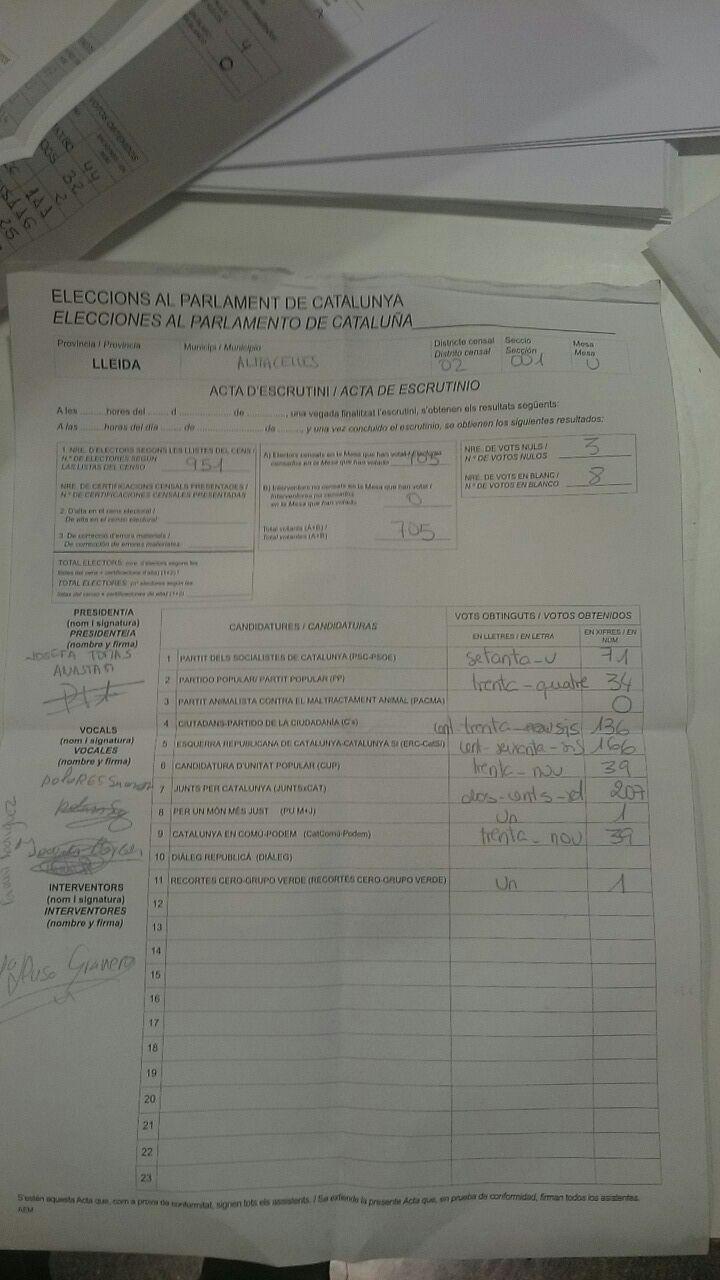 ELECCIONS AL PARLAMENT DE CATALUNYA
ELECCIONES AL PARLAMENTO DE CATALUÑA
Provincia / Provincia
Municipi / Municipio
Districte censal
Distrito censal
Secció
Sección
Mesa
Mesa
LLEIDA
ALMACELLES
02
001
U
ACTA D'ESCRUTINI / ACTA DE ESCRUTINIO
A les ........ hores del ..... d .............. de ............, una vegada finalitzat l'escrutini, s'obtenen els resultats següents:
A las ........ horas del día ..... de .............. de ............ y una vez concluido el escrutinio, se obtienen los siguientes resultados:
1. NRE. D'ELECTORS SEGONS LES LLISTES DEL CENS /
N.º DE ELECTORES SEGÚN
LAS LISTAS DEL CENSO 951
NRE. DE CERTIFICACIONS CENSALS PRESENTADES /
N.º DE CERTIFICACIONES CENSALES PRESENTADAS
2. D'alta en el cens electoral /
De alta en el censo electoral
3. De correcció d'errors materials /
De corrección de errores materiales
TOTAL ELECTORS
TOTAL ELECTORES
A) Electors censats en la Mesa que han votat / Electores
censados en la Mesa que han votado 705
B) Interventors no censats en la Mesa que han votat /
Interventores no censados
en la Mesa que han votado 0
Total votants (A+B) /
Total votantes (A+B) 705
NRE. DE VOTS NULS /
N.º DE VOTOS NULOS 3
NRE. DE VOTS EN BLANC /
N.º DE VOTOS EN BLANCO 8
PRESIDENT/A
(nom i signatura)
PRESIDENTE/A
(nombre y firma)
JOSEFA
VOCALS
(nom i signatura)
VOCALES
(nombre y firma)
DOLORES
INTERVENTORS
(nom i signatura)
INTERVENTORES
(nombre y firma)
CANDIDATURES / CANDIDATURAS
VOTS OBTINGUTS / VOTOS OBTENIDOS
EN LLETRES / EN LETRA
EN XIFRES / EN NÚM.
1 PARTIT DELS SOCIALISTES DE CATALUNYA (PSC-PSOE) setanta-u 71
2 PARTIDO POPULAR/ PARTIT POPULAR (PP) trenta-quatre 34
3 PARTIT ANIMALISTA CONTRA EL MALTRACTAMENT ANIMAL (PACMA) 0
4 CIUTADANS-PARTIDO DE LA CIUDADANÍA (C's) cent trenta-sis 136
5 ESQUERRA REPUBLICANA DE CATALUNYA-CATALUNYA SÍ (ERC-CatSí) 166
6 CANDIDATURA D'UNITAT POPULAR (CUP) trenta-nou 39
7 JUNTS PER CATALUNYA (JUNTSxCAT) dos-cents-set 207
8 PER UN MÓN MÉS JUST (PUM+J) Un 1
9 CATALUNYA EN COMÚ-PODEM (CatComú-Podem) trenta-nou 39
10 DIÀLEG REPUBLICÀ (DIÀLEG)
11 RECORTES CERO-GRUPO VERDE (RECORTES CERO-GRUPO VERDE) Un 1
12
13
14
15
16
17
18
19
20
21
22
23
S'estén aquesta Acta que, com a prova de conformitat, signen tots els assistents. / Se extiende la presente Acta que, en prueba de conformidad, firman todos los asistentes.
AEM